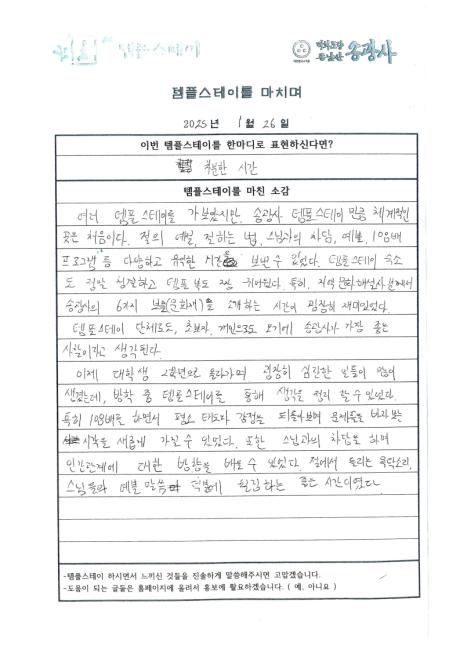 템플스테이
송광사
템플스테이를 마치며
2025 년 1 월 26 일
이번 템플스테이를 한마디로 표현하신다면?
차분한 시간
템플스테이를 마친 소감
여러 템플스테이를 가보았지만, 송광사 템플스테이 만큼 체계적인
곳은 처음이다. 절의 예절, 절하는 법, 스님과의 차담, 예불, 108배
프로그램 등 다양하고 유익한 시간을 보낼 수 있었다. 템플스테이 숙소
도 정말 청결하고 템플 복도 참 귀여웠다. 특히, 지역 문화해설사 분께서
송광사의 6가지 보물(문화재)를 소개하는 시간이 굉장히 재미있었다.
템플스테이 단체로도, 초보자, 개인으로도 오기에 송광사가 가장 좋은
사찰이라고 생각된다.
이제 대학생 2학년으로 올라가며 굉장히 심란한 일들이 많이
생겼는데, 방학 중 템플스테이를 통해 생각을 정리 할 수 있었다.
특히 108배를 하면서 평소 태도와 감정을 되돌아보며 문제들을 바라보는
시각을 새롭게 가질 수 있었다. 또한 스님과의 차담을 하며
인간관계에 대한 방향을 배울 수 있었다. 절에서 들리는 목탁소리,
스님들의 예불 말씀 덕분에 힐링하는 좋은 시간이였다.
-템플스테이 하시면서 느끼신 것들을 진솔하게 말씀해주시면 고맙겠습니다.
-도움이 되는 글들은 홈페이지에 올려서 홍보에 활요하겠습니다. ( 예, 아니요 )